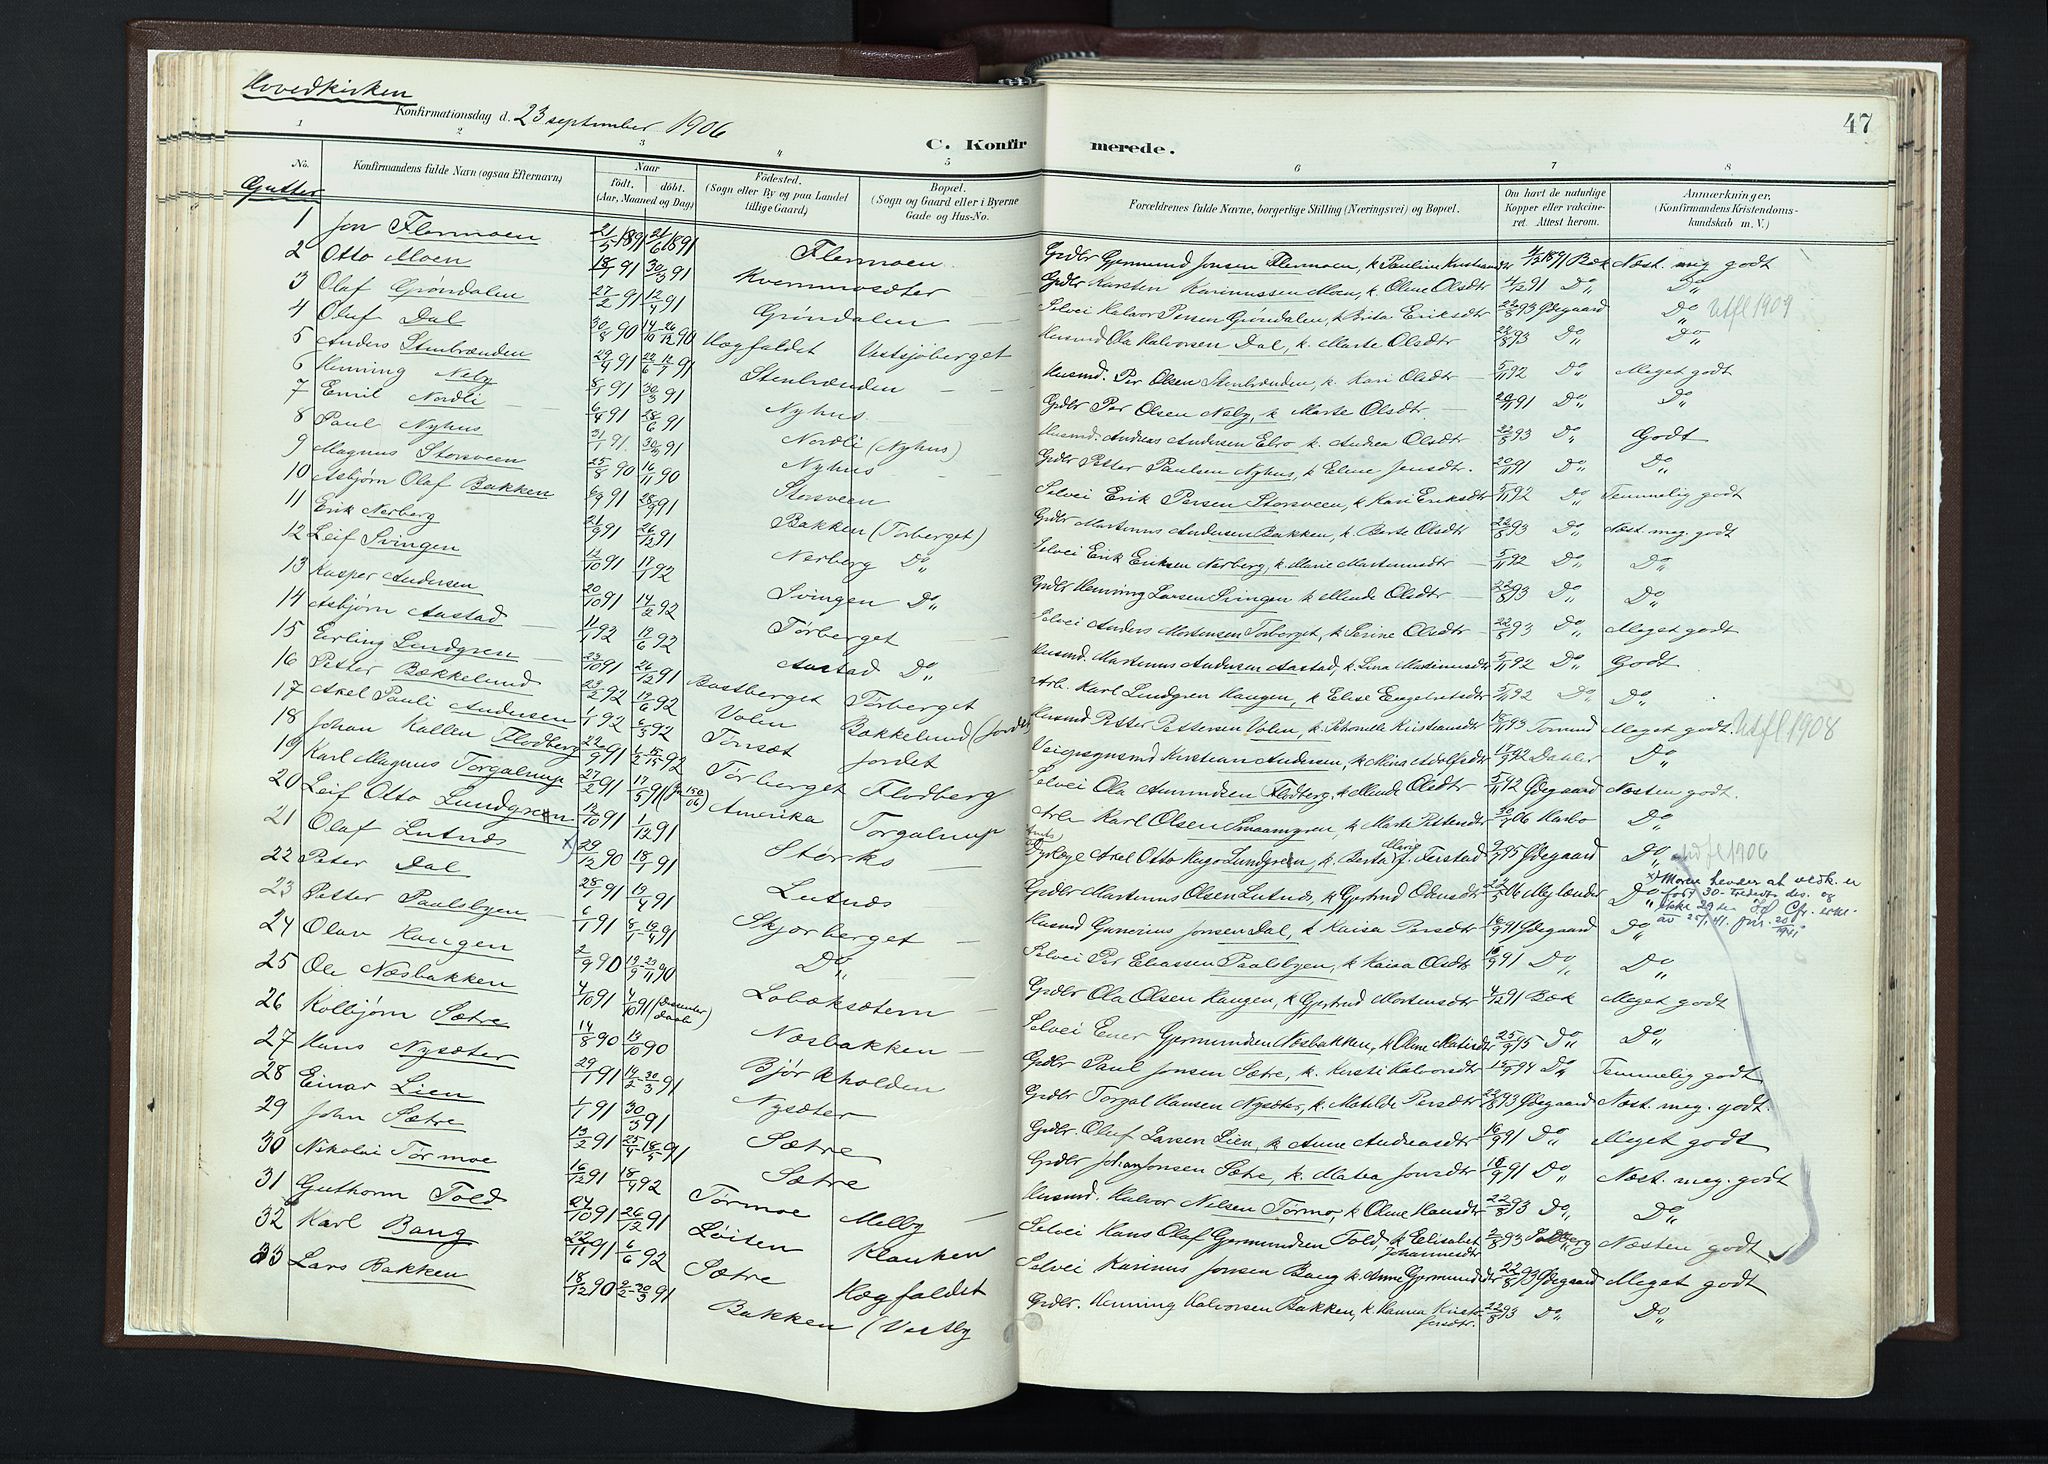 Hovedkirken
Konfirmationsdag d. 23 september 1906
C. Konfirmerede.
47
1 2 3 4 5 6 7 8
No.
Konfirmandens fulde Navn (ogsaa Efternavn)
Naar
født. døbt.
(Aar, Maaned og Dag)
Fødested.
(Sogn eller By og paa Landet
tillige Gaard)
Bopæl.
(Sogn og Gaard eller i Byerne
Gade og Hus-No.
Forældrenes fulde Navne, borgerlige Stilling (Næringsvei) og Bopæl.
Om havt de naturlige
Kopper eller vakcine-
ret. Attest herom.
Anmærkninger.
(Konfirmandens Kristendoms-
kundskab m. V.)
Gutter
1 Jon Flermoen 21/5 1891 21/6 1891 Flermoen Grdbr Gjermund Jonsen Flermoen, k. Pauline Kristiansdr 4/12 1891 Bæk Næst. meg godt
2 Otto Moen 18/1 91 30/3 91 Kvernmosæter Grdbr Karsten Karinussen Moen, k. Oline Olsdtr 4/12 91 Do
3 Olaf Grøndalen 27/2 91 12/4 91 Grøndalen Selvei Halvor Persen Grøndalen, k. Brita Eriksdtr 22/8 93 Ødegaard Do Utfl 1909
4 Oluf Dal 30/8 90 Hægfaldet Vestsjøberget Husmd Ola Halvorsen Dal, k. Marte Olsdtr 22/8 93 Do
5 Anders Stenbrænden 29/4 91 Stenbrænden Husmd. Per Olsen Stenbrænden, k. Kari Olsdtr 5/11 92 Do Meget godt
6 Henning Neby 8/1 91 30/3 91 Nyhus Grdbr Per Olsen Neby, k. Marte Olsdtr 20/11 91 Do
7 Emil Nordli 6/4 91 28/6 91 Nordli (Nyhus) Husmd. Andreas Andersen Ebro, k. Andrea Olsdtr 22/8 93 Do Godt
8 Paul Nyhus 31/1 91 30/3 91 Nyhus Grdbr Petter Paulsen Nyhus, k. Eline Jensdtr. 20/11 91 Do
9 Magnus Storsveen 25/8 90 16/11 90 Storsveen Selvei Erik Persen Storsveen, k. Kari Eriksdtr 5/11 92 Do Temmelig godt
10 Asbjørn Olaf Bakken 91 91 Bakken (Torberget) Grdbr Martinus Andersen Bakken, k. Berte Olsdtr 22/8 93 Do Næst. meg. godt
11 Erik Nerberg 21/9 91 26/12 91 Nerberg Do Selvei Erik Eriksen Nerberg, k. Marie Martinusdtr 5/11 92 Do
12 Leif Svingen 12/10 91 17/1 92 Svingen Do Grdbr Henning Larsen Svingen, k. Olsdtr 22/8 93 Do
13 Kasper Andersen 20/10 91 14/2 92 Tørberget Selvei Anders Mortensen Torberget, k. Serine Olsdtr 22/8 93 Do Meget godt
14 Asbjørn Austad 11/1 92 19/6 92 Austad Do Husmd. Martinus Andersen Aastad, k. Lina Martinusdtr 5/11 92 Do Godt
15 Erling Lundgren 23/10 91 26/12 91 Bastberget Tørberget Arb. Karl Lundgren Haugen, k. Elise Engebretsdtr 5/11 92 Do
16 Petter Bækkelund 23/2 92 19/6 92 Volen Bækkelund (Jordet) Husmd Petter Pettersen Volen, k. Pernella Kristiansdtr 18/11 93 Tomund Meget godt. Utfl 1908
17 Axel Pauli Andersen 1/1 92 6/3 92 Tønsæt Jordet Kristian Andersen, k. Mina Adolfsdtr 17/9 92 Dahler Do
18 Johan Kallen Flodberg 22/9 91 Tørberget Flodberg Selvei Ola Amundsen Flodberg, k. Olsdtr 5/11 92 Ødegaard Næsten godt.
19 Karl Magnus Torgalrup 27/2 91 17/5 91 Amerika Torgalrup Arb. Karl Olsen Smaamyren, k. Marte Pettersdtr 06 Harbo Do
20 Leif Otto Lundgren 12/10 91 1/12 91 Størks Axel Otto Hugo Lundgren, k. Berta Marie f. Ferstad 95 Ødegaard Do utfl 1906
21 Olaf Lutnæs x) 29/12 90 18/1 91 Lutnæs Grdbr Martinus Olsen Lutnæs, k. Gjertrud Odensdtr 06 Mejlænder Do
x) Moren hevder at vedk. er
født 30-tredevte des. og
ikke 29de Cfr. erkl.
av 25/4 41. Jnr. 20/1941
22 Peter Dal 28/1 91 19/4 91 Skjærberget Husmd Gunerius Jonsen Dal, k. Kaisa Persdtr 16/9 91 Ødegaard Do
23 Petter Paalsbyen 6/1 91 Do Selvei Per Eliassen Paalsbyen, k. Kaisa Olsdtr 16/9 91 Do
24 Olav Haugen 2/9 90 Løbæksætern Grdbr Ola Olsen Haugen, k. Gjertrud Mortensdtr 4/12 91 Bæk Meget godt
25 Ole Næsbakken 4/10 91 4/10 91 Næsbakken Selvei Ener Gjermundsen Næsbakken, k. Oline Matisdtr 25/9 95 Do
26 Kolbjørn Sætre 14/8 90 19/10 90 Bjørkholden Grdbr Paul Jonsen Sætre, k. Kirsti Halvorsdtr 94 Do Temmelig godt
27 Hans Nysæter 29/1 91 Nysæter Grdbr Torgal Hansen Nysæter, k. Matilde Persdtr 22/8 93 Ødegaard Næst. meg. godt.
28 Einar Lien 1/1 91 30/3 91 Sætre Grdbr. Oluf Larsen Lien, k. Anne Andreasdtr 16/9 91 Do Meget godt
29 John Sætre 13/2 91 Sætre Grdbr Johan Jonsen Sætre, k. Matea Jonsdtr 18/9 91 Do Næst. meg. godt
30 Nikolai Tørmoe 16/12 91 18/4 92 Tørmoe Melby Husmd. Halvor Nilsen Tørmo, k. Oline Hansdtr 22/8 93 Do
31 Guthorm Told 24/10 91 26/12 91 Løiten Klanken Selvei Hans Olaf Gjermundsen Told, k. Elisabet Johannesdtr 2/8 93 Næsten godt
32 Karl Bang 22/11 91 6/6 92 Sætre Hægfaldet Selvei Karinus Jonsen Bang k. Anne Gjermundsdtr 22/8 93 Ødegaard Meget godt
33 Lars Bakken 18/12 90 Bakken (Vestby Grdbr. Henning Halvorsen Bakken, k. Hanna 22/8 93 Do